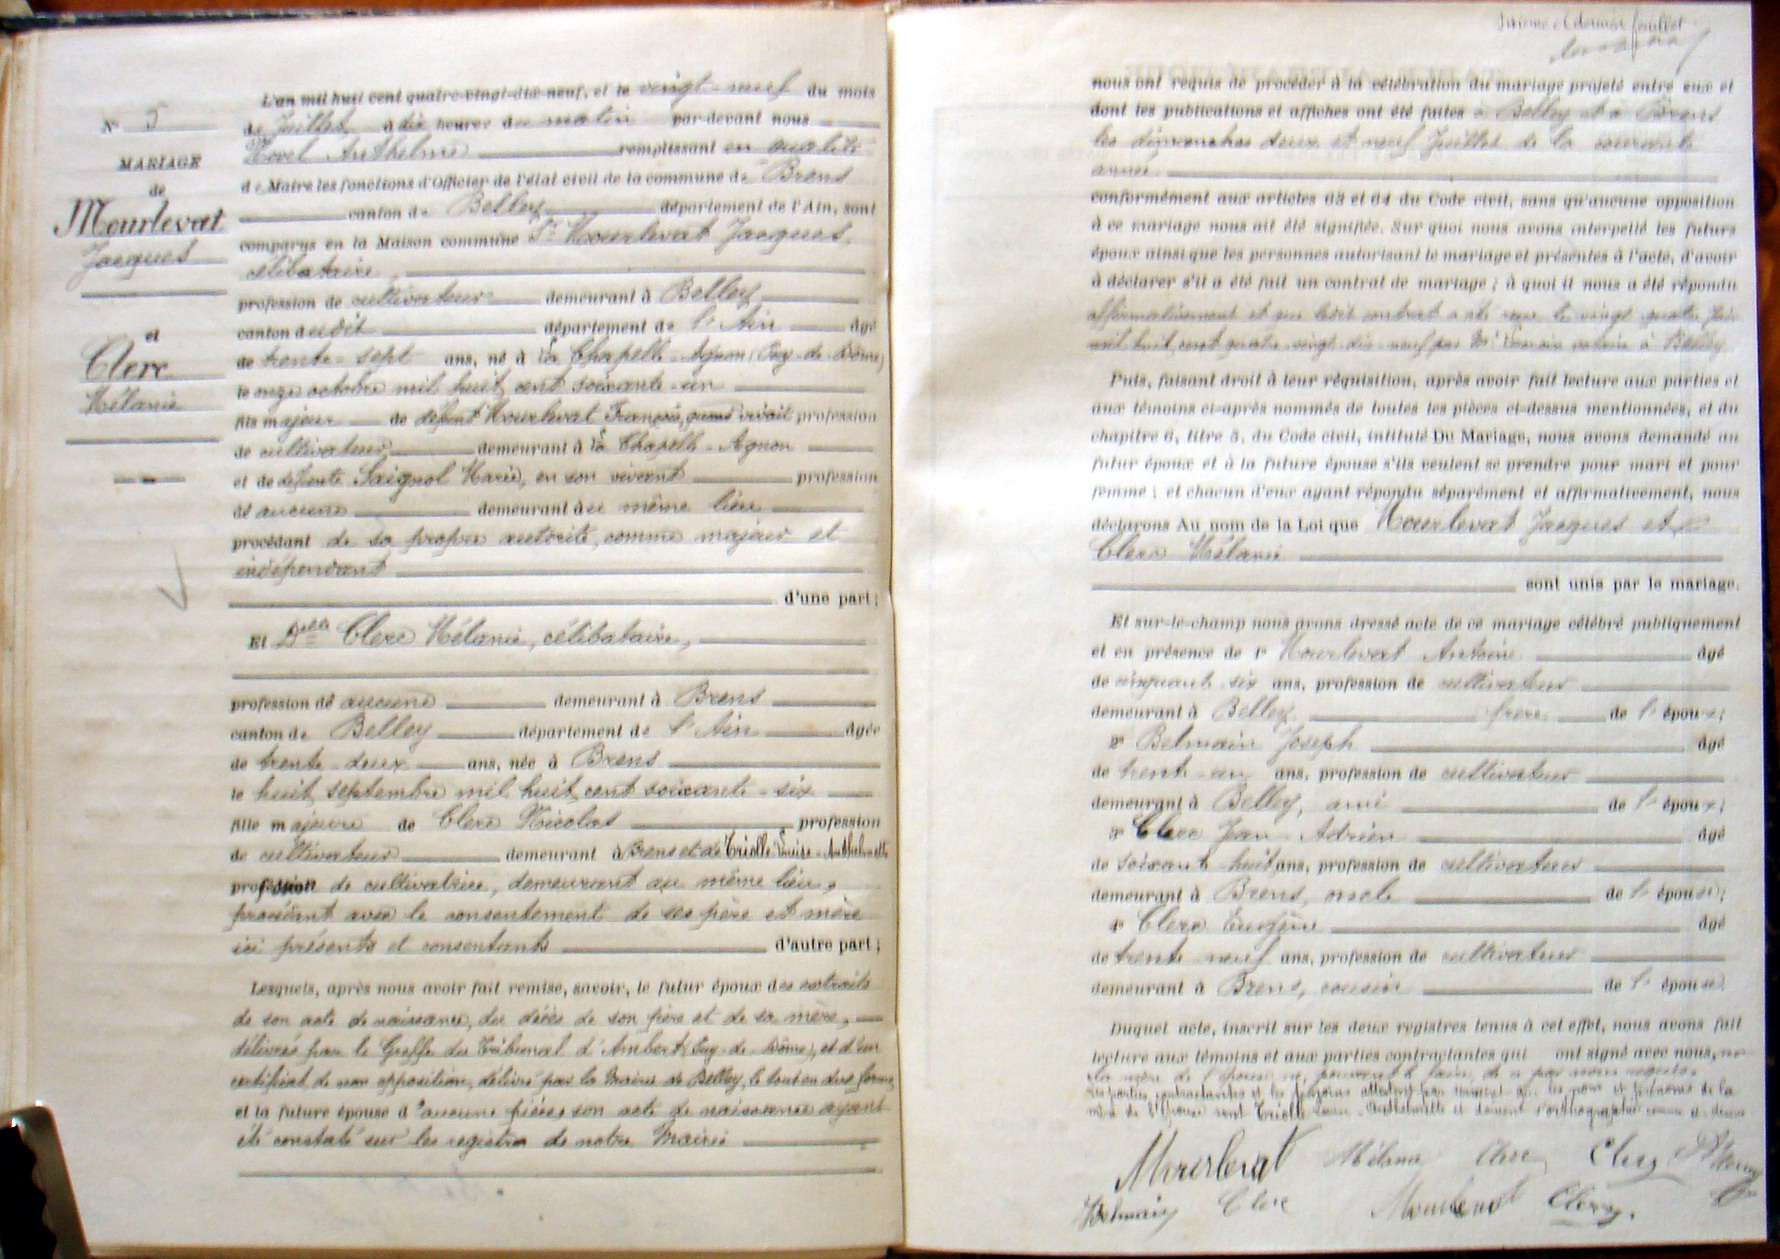 N° 5
MARIAGE
de
Mourlevat
Jacques
et
Clerc
Mélanie
L'an mil huit cent quatre-vingt-dix-neuf, et le vingt-neuf du mois
de Juillet, à dix heures du matin par-devant nous
Anthelme remplissant en qualité
de Maire les fonctions d'Officier de l'état civil de la commune de Brens
canton de Belley département de l'Ain, sont
comparus en la Maison commune Sr Mourlevat Jacques,
célibataire,
profession de cultivateur demeurant à Belley,
canton dudit département de l'Ain âgé
de trente-sept ans, né à La Chapelle-Agnon (Puy-de-Dôme)
le onze octobre mil huit cent soixante-un
fils majeur de défunt Mourlevat François, quand vivait profession
de cultivateur demeurant à La Chapelle-Agnon
et de défunte Saignol Marie, en son vivant profession
de aucune demeurant au même lieu
procédant de sa propre autorité, comme majeur et
indépendant
d'une part;
Et Delle Clerc Mélanie, célibataire,
profession de aucune demeurant à Brens
canton de Belley département de l'Ain âgée
de trente-deux ans, née à Brens
le huit septembre mil huit cent soixante-six
fille majeure de Clerc Nicolas profession
de cultivateur demeurant à Brens et de Triolle Louise-Anthelmette
profession de cultivatrice, demeurant au même lieu,
procédant avec le consentement de ses père et mère
ici présents et consentants d'autre part;
Lesquels, après nous avoir fait remise, savoir, le futur époux des extraits
de son acte de naissance, du décès de son père et de sa mère,
délivrés par le Greffe du Tribunal d'Ambert (Puy-de-Dôme), et d'un
certificat de non opposition, délivré par la Mairie de Belley, le tout en due forme,
et la future épouse d'aucune pièce, son acte de naissance ayant
été constaté sur les registres de notre Mairie
et dernier feuillet
nous ont requis de procéder à la célébration du mariage projeté entre eux et
dont les publications et affiches ont été faites à Belley et à Brens
les dimanches deux et neuf Juillet de la courante
année
conformément aux articles 63 et 64 du Code civil, sans qu'aucune opposition
à ce mariage nous ait été signifiée. Sur quoi nous avons interpellé les futurs
époux ainsi que les personnes autorisant le mariage et présentes à l'acte, d'avoir
à déclarer s'il a été fait un contrat de mariage; à quoi il nous a été répondu
affirmativement et que ledit contrat a été reçu le vingt-quatre
mil huit cent quatre-vingt-dix-neuf par Me notaire à Belley
Puis, faisant droit à leur réquisition, après avoir fait lecture aux parties et
aux témoins ci-après nommés de toutes les pièces ci-dessus mentionnées, et du
chapitre 6, titre 5, du Code civil, intitulé Du Mariage, nous avons demandé au
futur époux et à la future épouse s'ils veulent se prendre pour mari et pour
femme; et chacun d'eux ayant répondu séparément et affirmativement, nous
déclarons Au nom de la Loi que Mourlevat Jacques et
Clerc Mélanie
sont unis par le mariage.
Et sur-le-champ nous avons dressé acte de ce mariage célébré publiquement
et en présence de 1° Mourlevat Antoine âgé
de cinquante-six ans, profession de cultivateur
demeurant à Belley frère de l'époux;
2° Belmain Joseph âgé
de trente-un ans, profession de cultivateur
demeurant à Belley, ami de l'époux;
3° Clerc Jean-Adrien âgé
de soixante-huit ans, profession de cultivateur
demeurant à Brens, oncle de l'épouse;
4° Clerc Eugène âgé
de trente-neuf ans, profession de cultivateur
demeurant à Brens, cousin de l'épouse.
Duquel acte, inscrit sur les deux registres tenus à cet effet, nous avons fait
lecture aux témoins et aux parties contractantes qui ont signé avec nous, non
la mère de l'épouse ne pouvant le faire, de ce par nous requise.
Les parties contractantes et les témoins attestent que les nom et prénoms de la
mère de l'épouse sont Triolle Louise-Anthelmette et doivent s'orthographier comme ci-dessus
Mourlevat Mélanie Clerc Clerc
Belmain Clerc Mourlevat Clerc